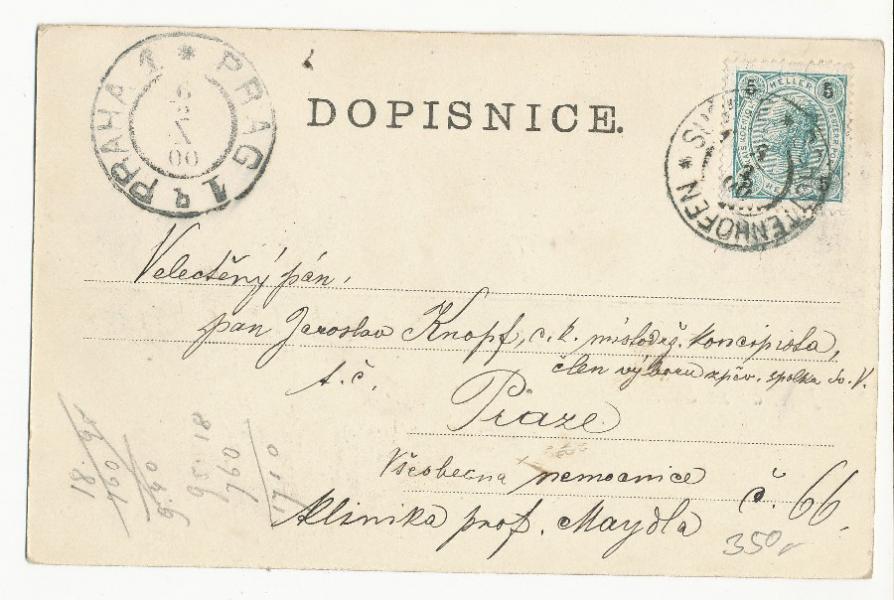 PRAHA 1 * PRAG 1
00
DOPISNICE.
5 HELLER 5
TENHOFEN *
Velectěný pán,
pan Jaroslav Knopf, c. k. místodrž. koncipista,
člen výboru zpěv. spolku sv. V.
t. č.
Praze
Všeobecna nemocnice
Klinika prof. Maydla č. 66.
350
18.95
760
9.40
95.18
760
1710